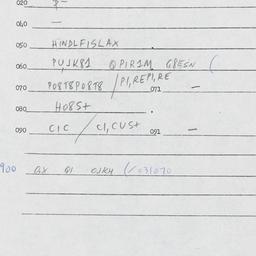 020
040 —
050 HINDLFISLAX
060 PUJK81 QPIR1M G8ESN (
070 PO8T8PO8T8 / PI,REPI,RE 071 —
080 HO8S+
090 CIC / CI,CUS+ 091 —
900 GX QI OJKH (✓031070